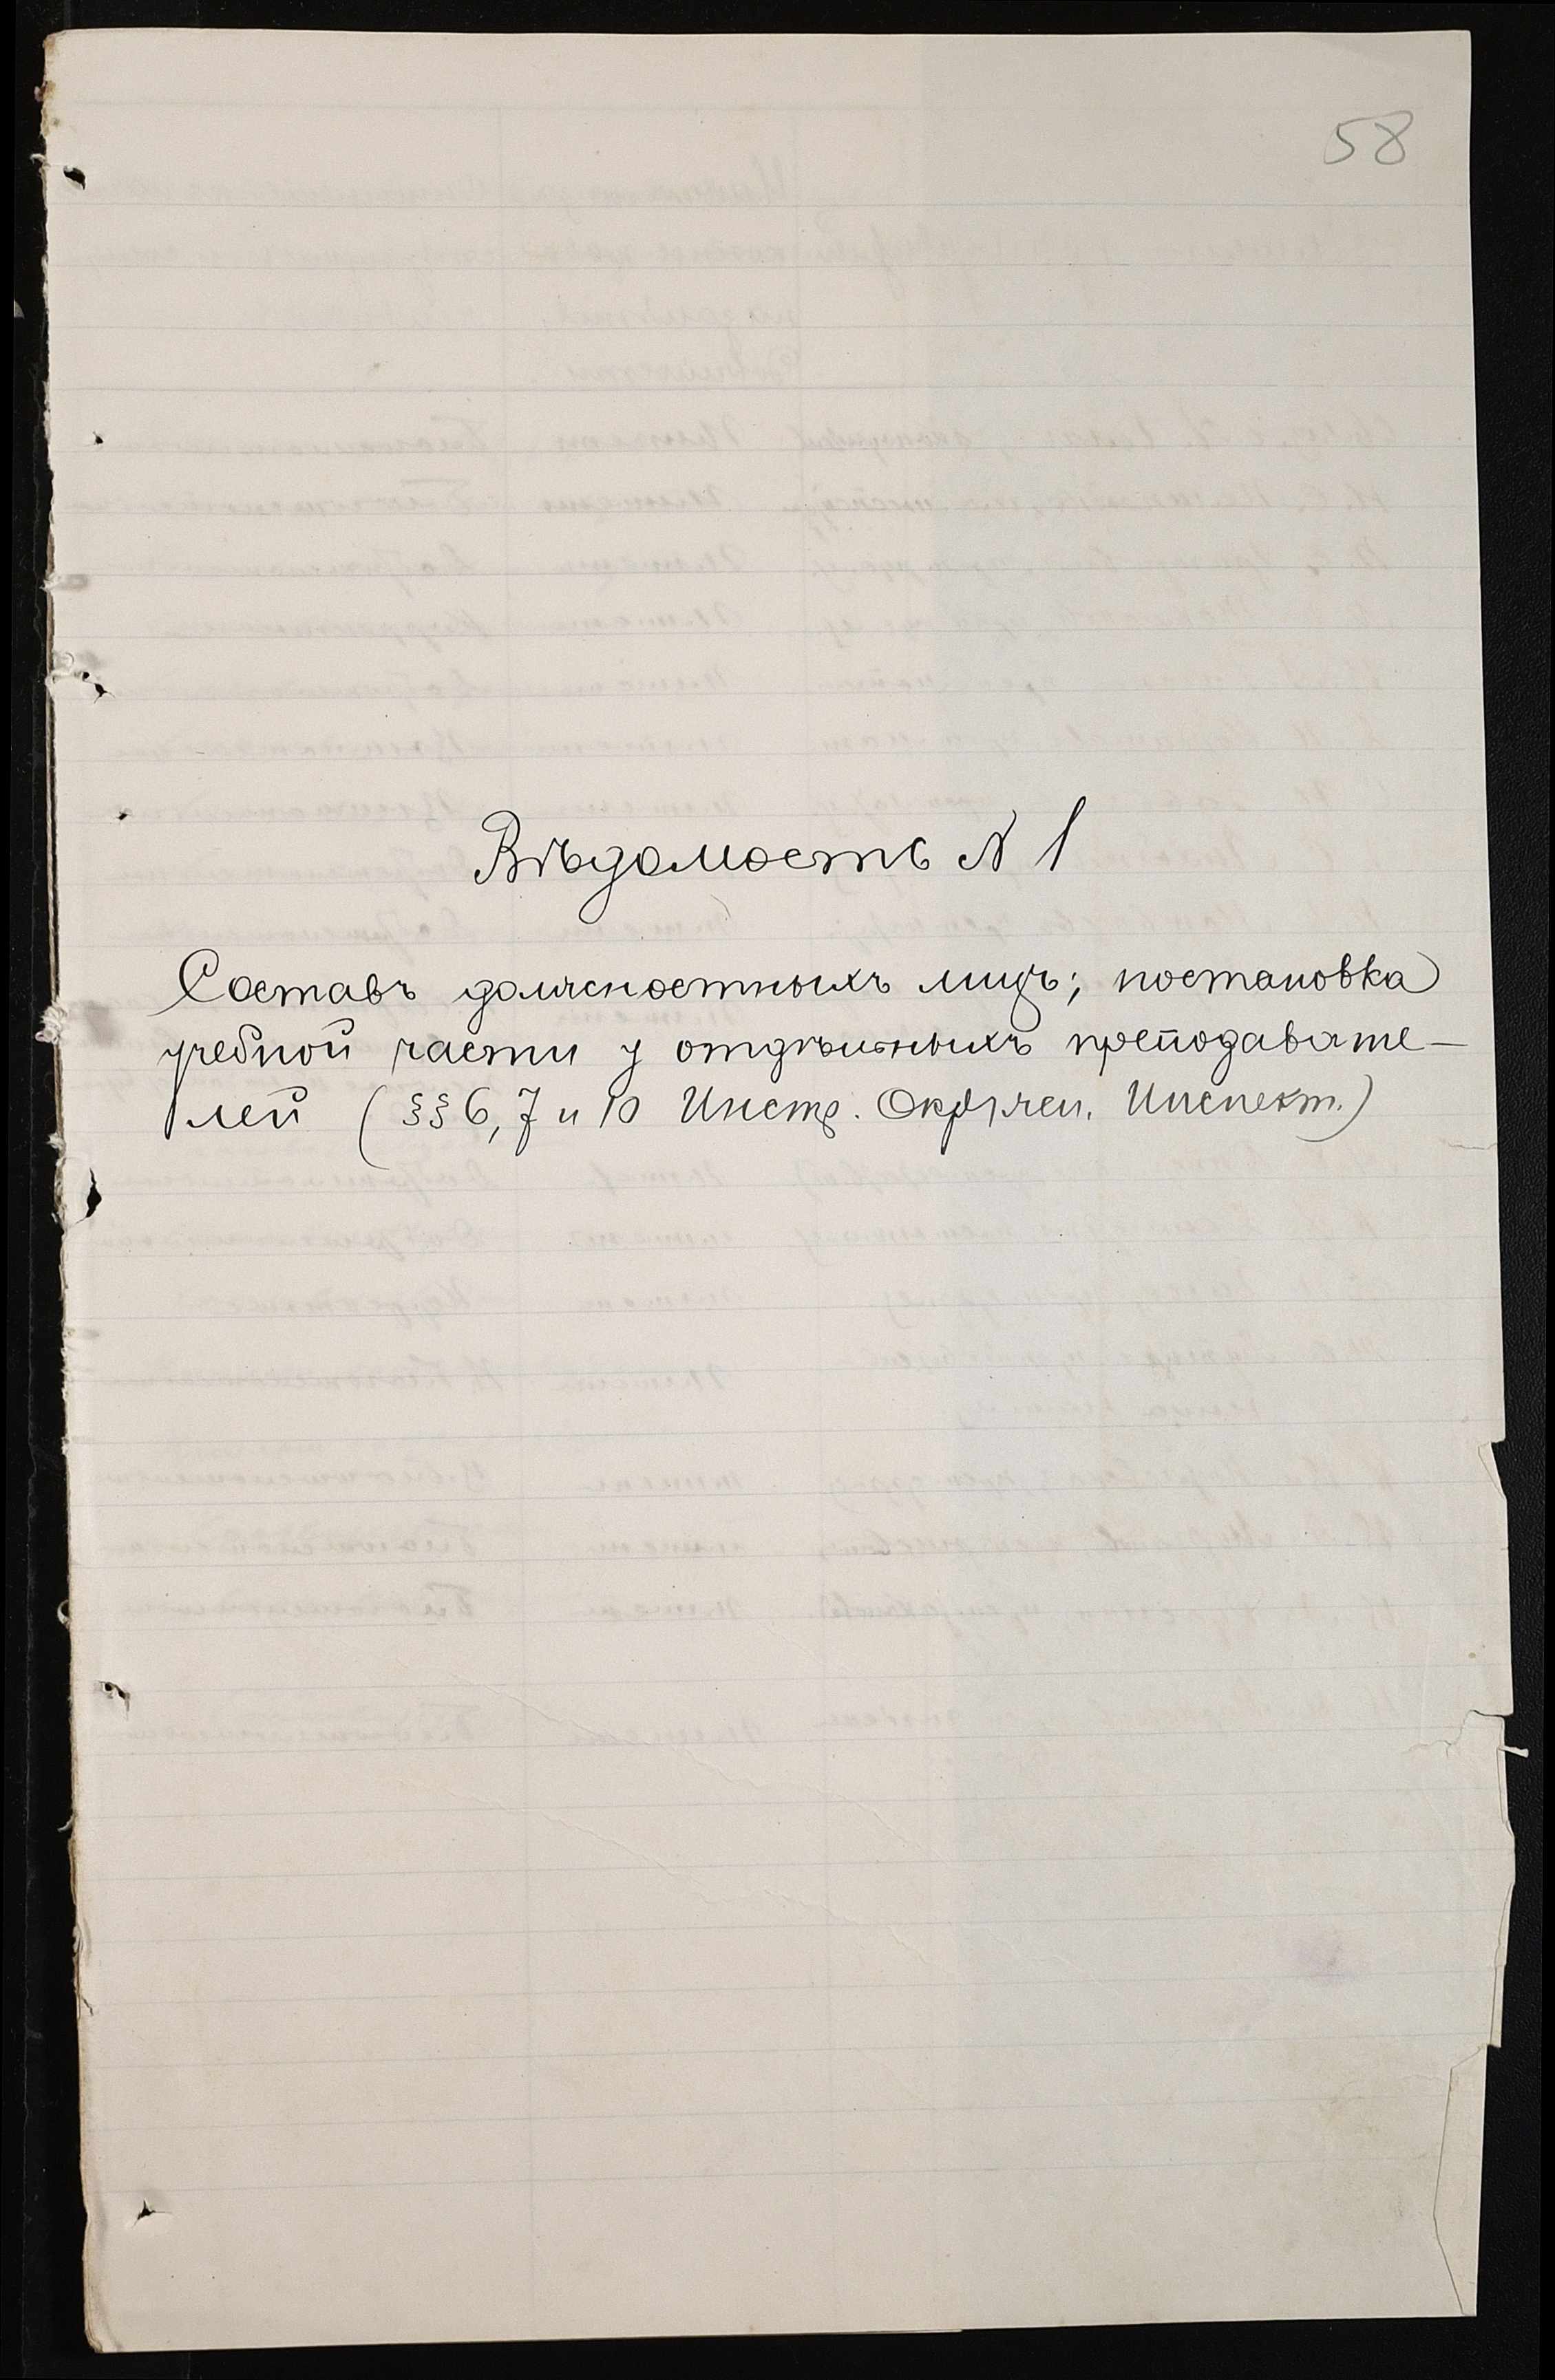 58
Вѣдомость № 1
Составъ должностныхъ лицъ; постановка
учебной части у отдѣльныхъ преподавате-
лей (§§ 6, 7 и 10 Инстр. Окружн. Инспект.)